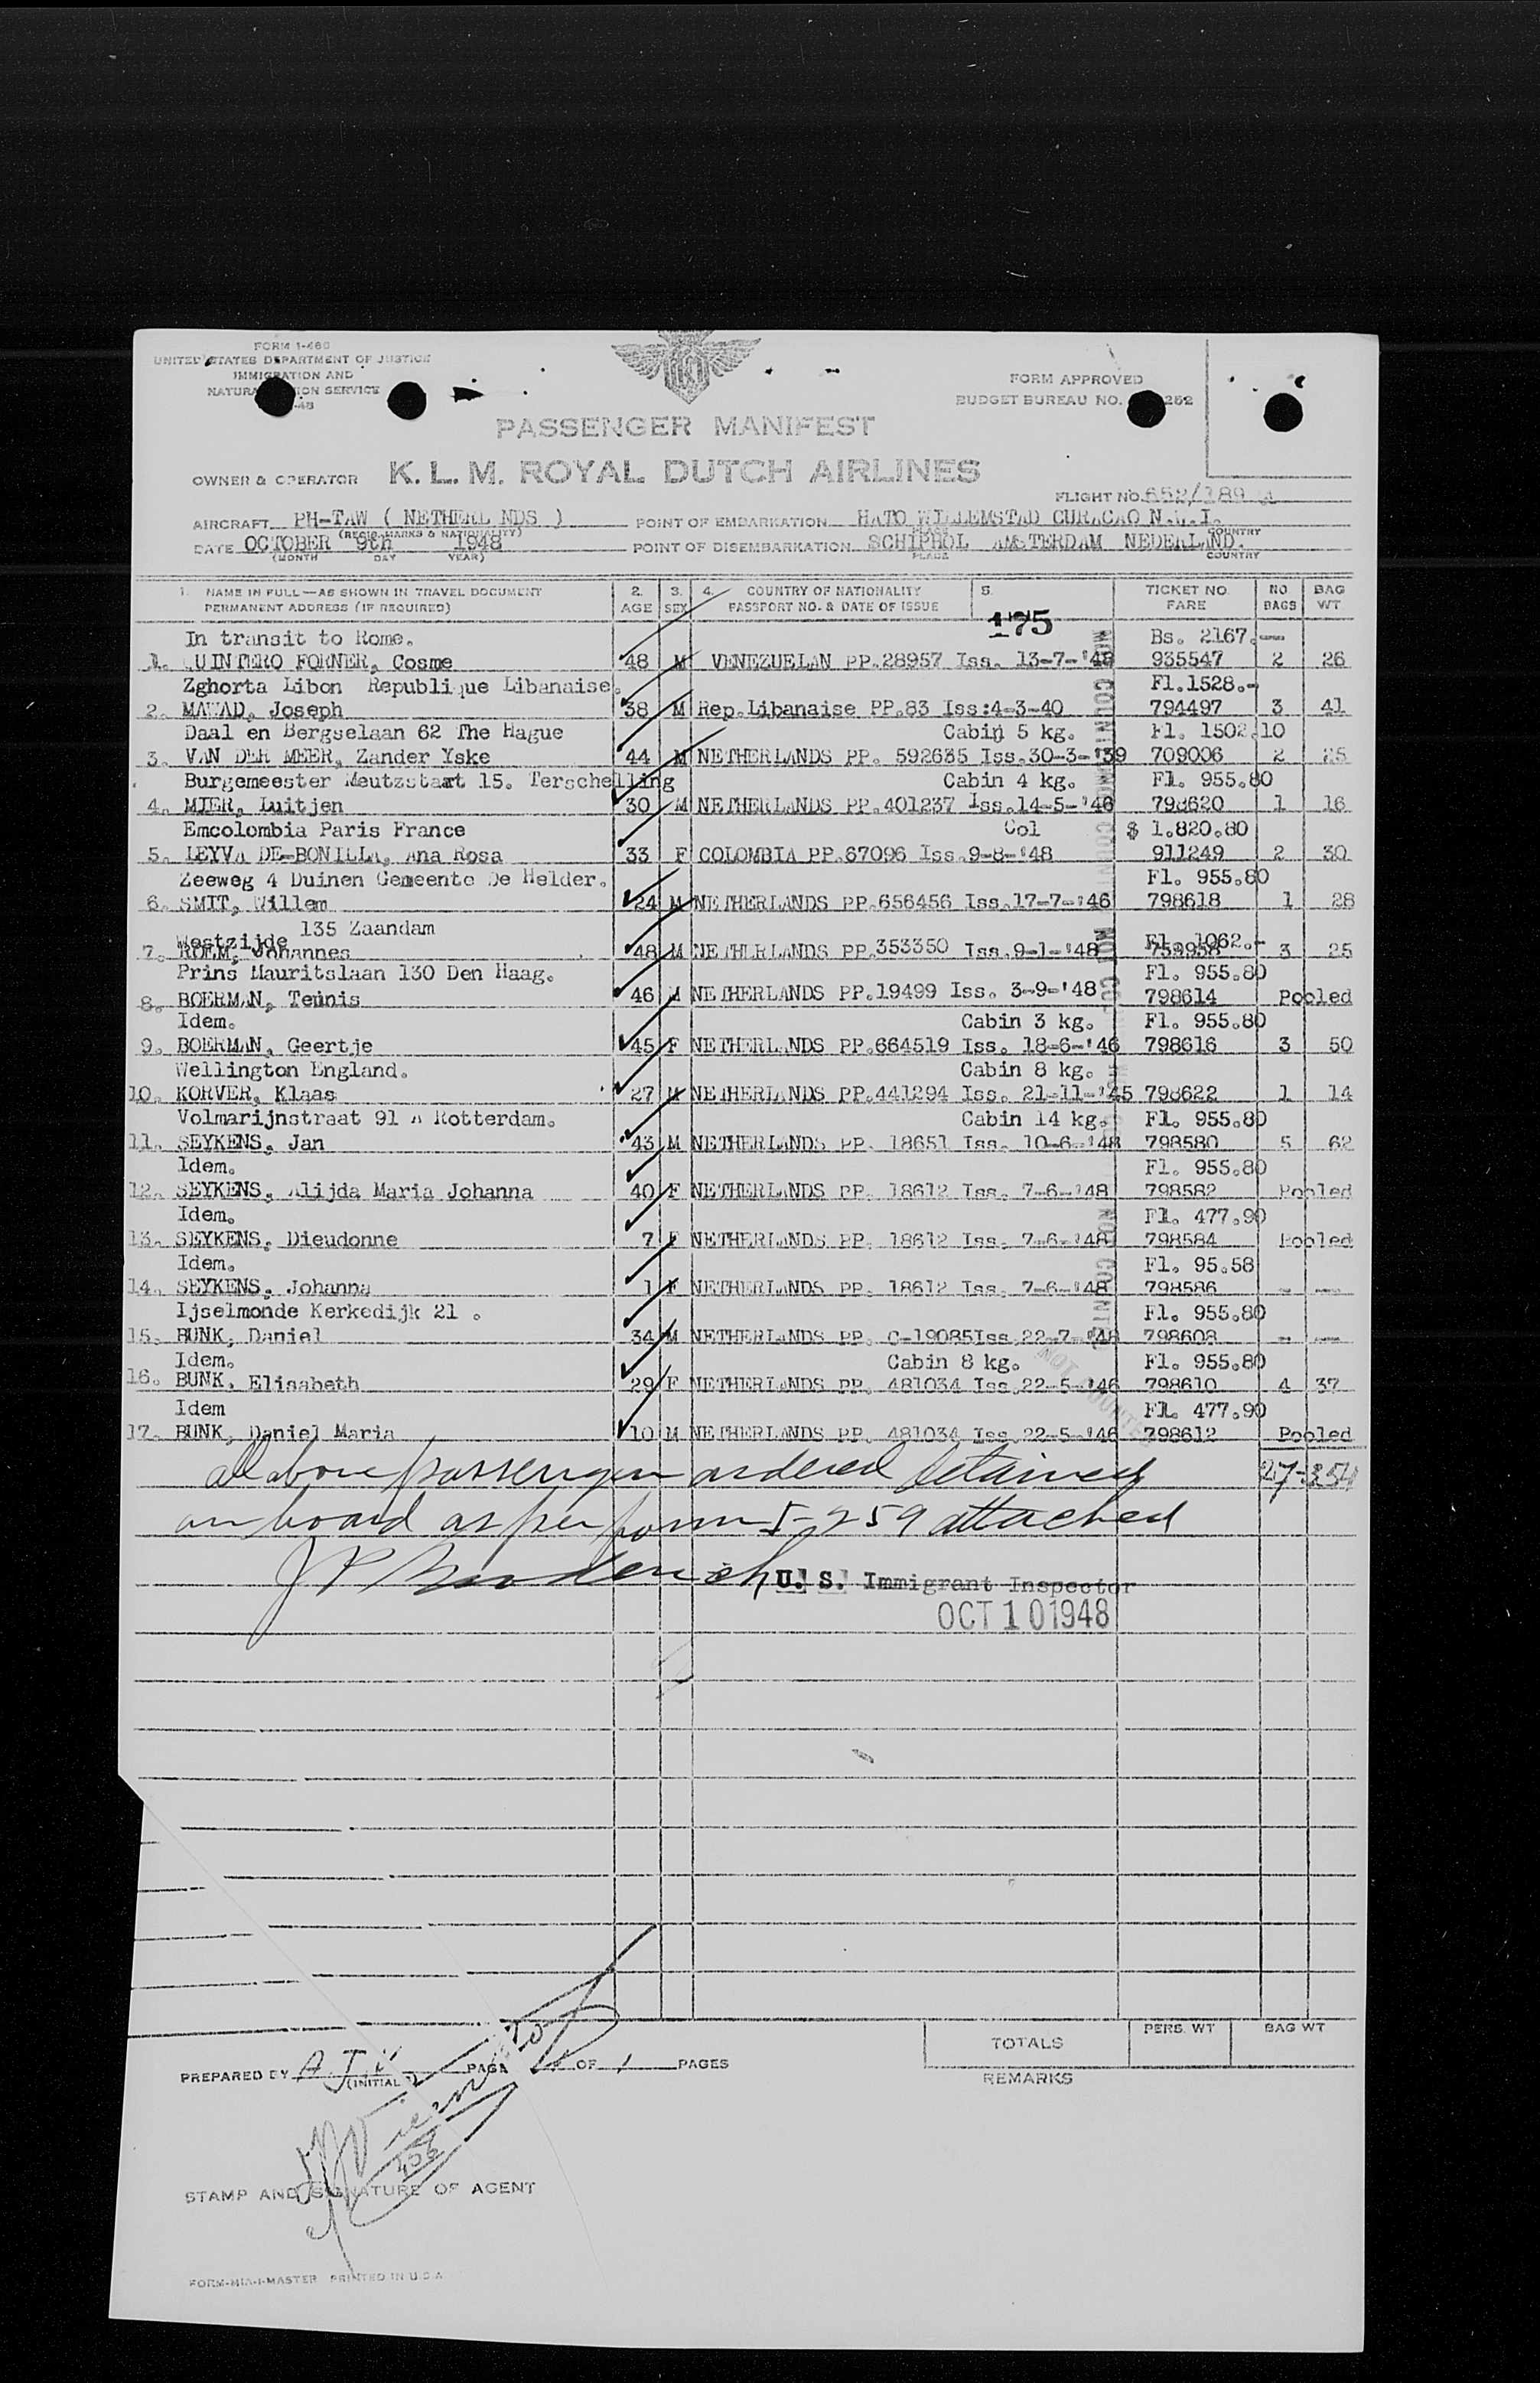 FORM I-466
UNITED STATES DEPARTMENT OF JUSTICE
IMMIGRATION AND
NATURA ION SERVICE
-48
FORM APPROVED
BUDGET BUREAU NO. 252
PASSENGER MANIFEST
OWNER & OPERATOR K. L. M. ROYAL DUTCH AIRLINES
FLIGHT NO. 652/189
AIRCRAFT PH-TAW ( NETHERL NDS ) POINT OF EMBARKATION HATO WILLEMSTAD CURACAO N.W.I.
(REGIS. MARKS & NATIONALITY) PLACE COUNTRY
DATE OCTOBER 9th 1948 POINT OF DISEMBARKATION SCHIPHOL AMSTERDAM NEDERLAND.
(MONTH DAY YEAR) PLACE COUNTRY
1. NAME IN FULL—AS SHOWN IN TRAVEL DOCUMENT 2. 3. 4. COUNTRY OF NATIONALITY 5. TICKET NO. NO. BAG
PERMANENT ADDRESS (IF REQUIRED) AGE SEX PASSPORT NO. & DATE OF ISSUE FARE BAGS WT
175
In transit to Rome. Bs. 2167.--
1. QUINTERO FORNER, Cosme 48 M VENEZUELAN PP.28957 Iss. 13-7-'48 935547 2 26
Zghorta Libon Republique Libanaise. Fl.1528.-
2. MAWAD, Joseph 38 M Rep.Libanaise PP.83 Iss:4-3-40 794497 3 41
Daal en Bergselaan 62 The Hague Cabin 5 kg. Fl. 1502.10
3. VAN DER MEER, Zander Yske 44 M NETHERLANDS PP. 592635 Iss.30-3-'39 709006 2 25
Burgemeester Meutzstaart 15. Terschelling Cabin 4 kg. Fl. 955.80
4. MIER, Luitjen 30 M NETHERLANDS PP.401237 Iss.14-5-'46 798620 1 16
Emcolombia Paris France Col $ 1.820.80
5. LEYVA DE-BONILLA, Ana Rosa 33 F COLOMBIA PP.67096 Iss.9-8-'48 911249 2 30
Zeeweg 4 Duinen Gemeente De Helder. Fl. 955.80
6. SMIT, Willem 24 M NETHERLANDS PP.656456 Iss.17-7-'46 798618 1 28
Westzijde 135 Zaandam Fl. 1062.-
7. ROEM, Johannes 48 M NETHERLANDS PP.353350 Iss.9-1-'48 753958 3 25
Prins Mauritslaan 130 Den Haag. Fl. 955.80
8. BOERMAN, Teunis 46 M NETHERLANDS PP.19499 Iss. 3-9-'48 798614 Pooled
Idem. Cabin 3 kg. Fl. 955.80
9. BOERMAN, Geertje 45 F NETHERLANDS PP.664519 Iss. 18-6-'46 798616 3 50
Wellington England. Cabin 8 kg.
10. KORVER, Klaas 27 M NETHERLANDS PP.441294 Iss. 21-11-'45 798622 1 14
Volmarijnstraat 91 A Rotterdam. Cabin 14 kg. Fl. 955.80
11. SEYKENS, Jan 43 M NETHERLANDS PP. 18651 Iss. 10-6-'48 798580 5 62
Idem. Fl. 955.80
12. SEYKENS, Alijda Maria Johanna 40 F NETHERLANDS PP. 18612 Iss. 7-6-'48 798582 Pooled
Idem. Fl. 477.90
13. SEYKENS, Dieudonne 7 F NETHERLANDS PP. 18612 Iss. 7-6-'48 798584 Pooled
Idem. Fl. 95.58
14. SEYKENS, Johanna 1 F NETHERLANDS PP. 18612 Iss. 7-6-'48 798586 - --
Ijselmonde Kerkedijk 21 . Fl. 955.80
15. BUNK, Daniel 34 M NETHERLANDS PP. C-19085Iss.22-7-'48 798608 - --
Idem. Cabin 8 kg. Fl. 955.80
16. BUNK, Elisabeth 29 F NETHERLANDS PP. 481034 Iss.22-5-'46 798610 4 37
Idem Fl. 477.90
17. BUNK, Daniel Maria 10 M NETHERLANDS PP. 481034 Iss.22-5-'46 798612 Pooled
NOT COUNTED
all above passengers ordered detained 27-354
on board as per form I-259 attached
U. S. Immigrant Inspector
OCT 10 1948
TOTALS PERS. WT BAG WT
PREPARED BY (INITIAL) PAGE OF 1 PAGES
REMARKS
STAMP AND SIGNATURE OF AGENT
FORM-MIA-1-MASTER PRINTED IN U.S.A.